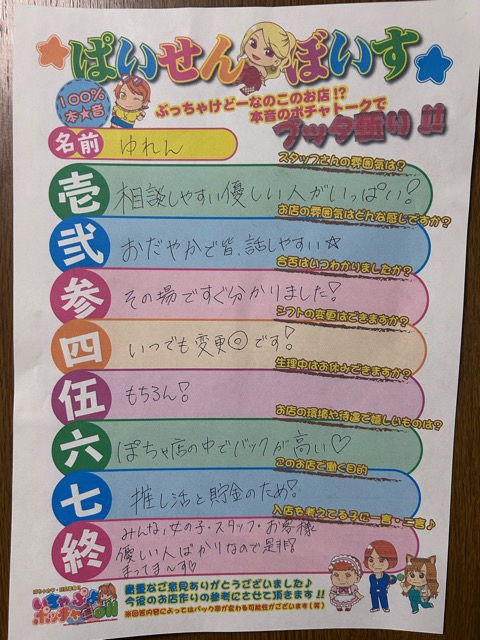 ぱいせんぼいす
100%
本★音
ぶっちゃけどーなのこのお店!?
本音のポチャトークで
ブッタ斬り!!
名前
ゆれん
スタッフさんの雰囲気は?
壱
相談しやすい優しい人がいっぱい!
お店の雰囲気はどんな感じですか?
弐
おだやかで皆、話しやすい☆
合否はいつわかりましたか?
参
その場ですぐ分かりました!
シフトの変更はできますか?
四
いつでも変更◎です!
生理中はお休みできますか?
伍
もちろん!
お店の環境や待遇で嬉しいものは?
六
ぽちゃ店の中でバックが高い♡
このお店で働く目的
七
推し活と貯金のため!
入店を考えてる子に一言・二言♪
終
みんな、女の子・スタッフ・お客様
優しい人ばかりなので是非!
まってま〜す♡
貴重なご意見ありがとうございました♪
今後のお店作りの参考にさせて頂きます!!
※回答内容によってはバック率が変わる可能性がございます(笑)